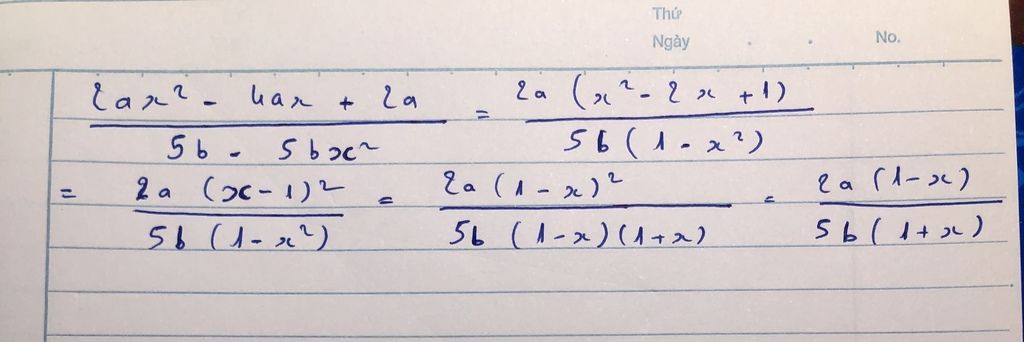 Thứ
Ngày . . No.
(2ax² - 4ax + 2a)/(5b - 5bx²) = (2a (x² - 2x + 1))/(5b (1 - x²))
= (2a (x - 1)²)/(5b (1 - x²)) = (2a (1 - x)²)/(5b (1 - x)(1 + x)) = (2a (1 - x))/(5b (1 + x))